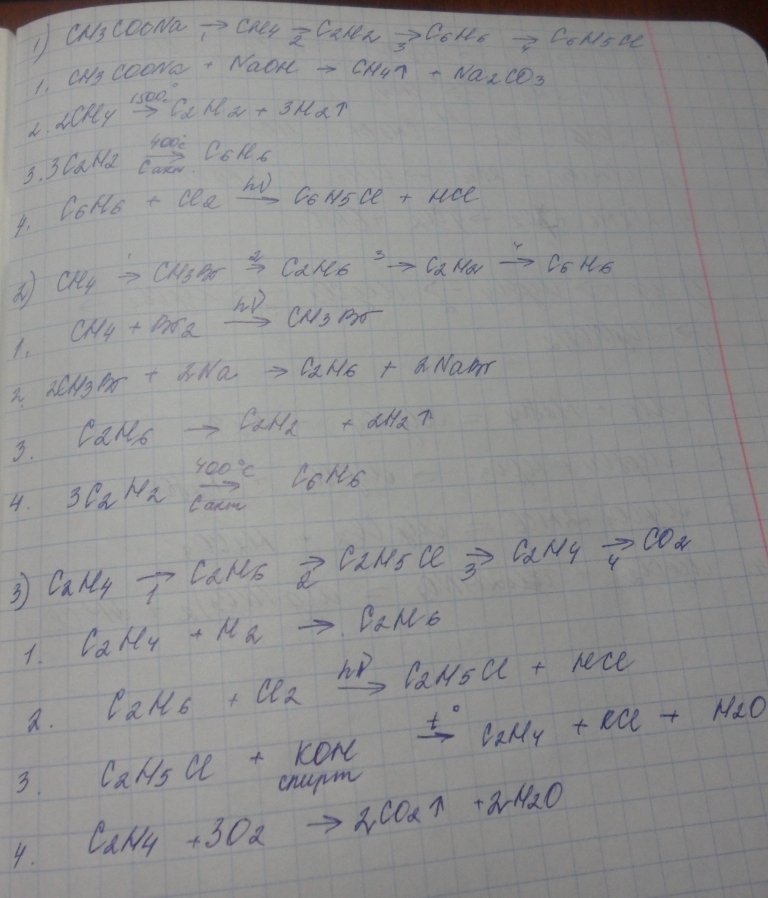 1) CH3COONa →1 CH4 →2 C2H2 →3 C6H6 →4 C6H5Cl
1. CH3COONa + NaOH → CH4↑ + Na2CO3
2. 2CH4 1500° → C2H2 + 3H2↑
3. 3C2H2 400°C → Cакт. C6H6
4. C6H6 + Cl2 hν → C6H5Cl + HCl
2) CH4 1 → CH3Br 2 → C2H6 3 → C2H2 4 → C6H6
1. CH4 + Br2 hν → CH3Br
2. 2CH3Br + 2Na → C2H6 + 2NaBr
3. C2H6 → C2H2 + 2H2↑
4. 3C2H2 400°C → Cакт C6H6
3) C2H4 →1 C2H6 →2 C2H5Cl →3 C2H4 →4 CO2
1. C2H4 + H2 → C2H6
2. C2H6 + Cl2 hν → C2H5Cl + HCl
3. C2H5Cl + KOH спирт t° → C2H4 + KCl + H2O
4. C2H4 + 3O2 → 2CO2↑ + 2H2O